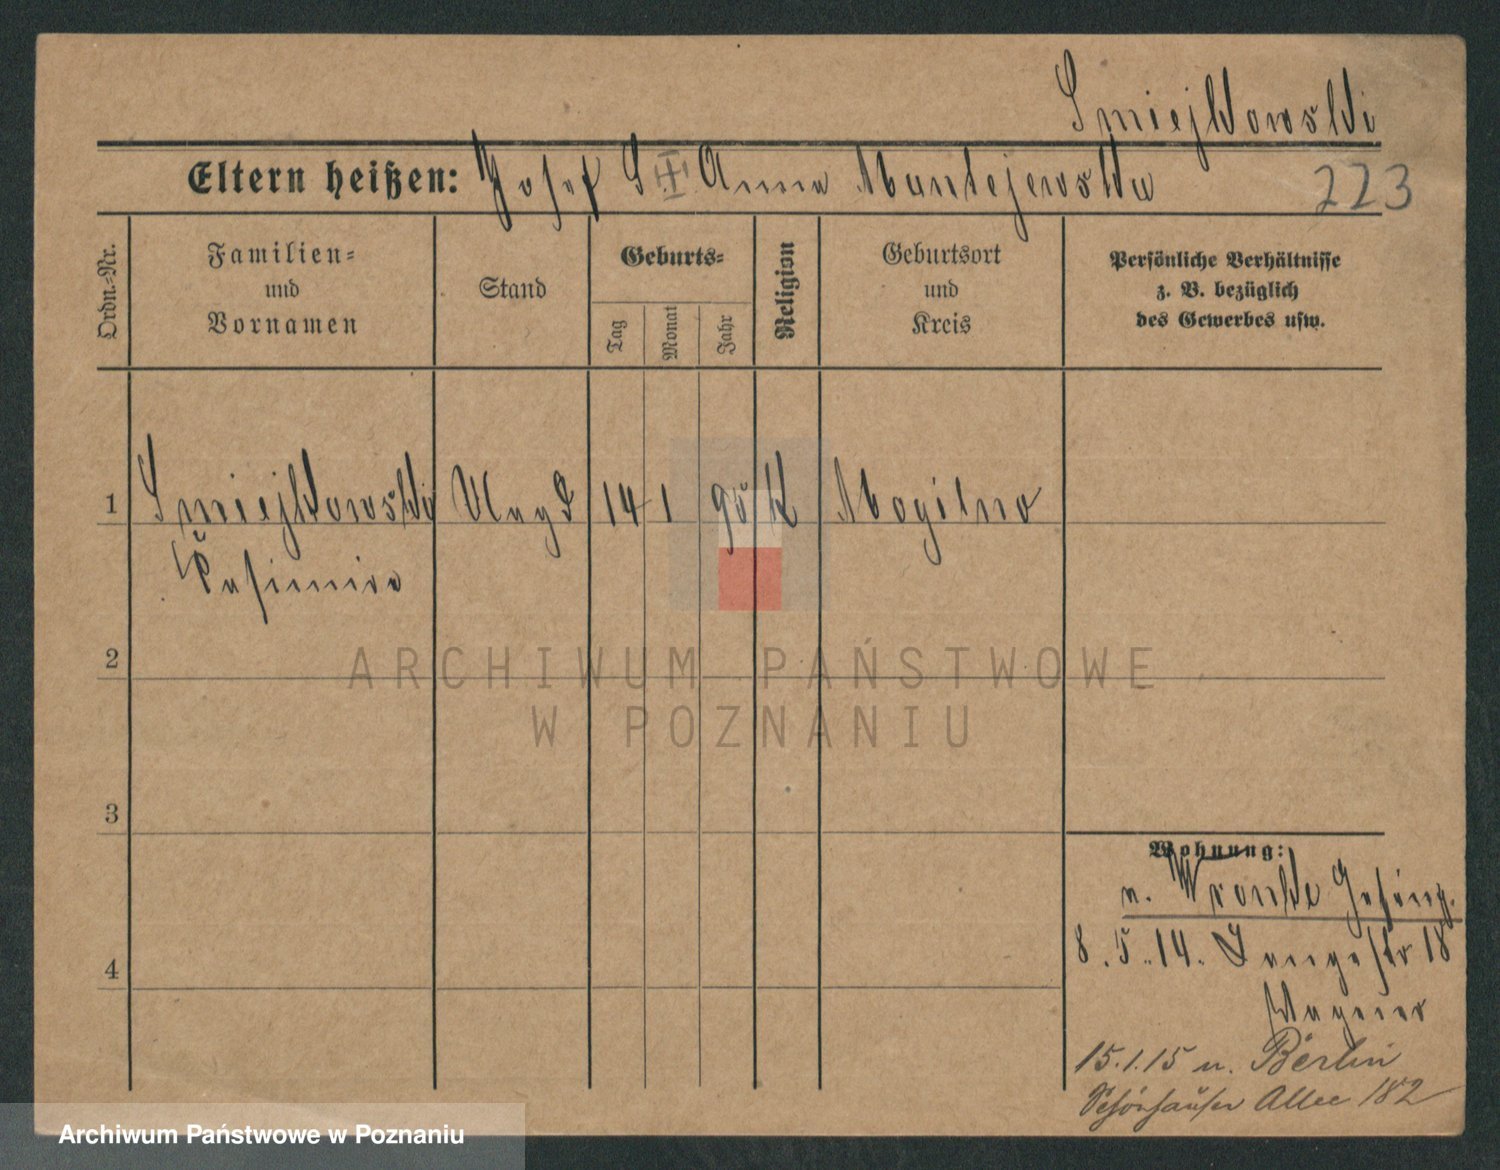 Smiejkowski
Eltern heißen: Josef S. Anna Mantejewska 223
Ordn.-Nr.
Familien-
und
Vornamen
Stand
Geburts-
Tag
Monat
Jahr
Religion
Geburtsort
und
Kreis
Persönliche Verhältnisse
z. B. bezüglich
des Gewerbes usw.
1 Smiejkowski Magd 14 1 95 K Mogilno
Casimira
2
3
4
Wohnung:
n. Wronke Gefäng.
8.5.14. Langestr 18
Wagener
15.1.15 n. Berlin
Schönhauser Allee 182
ARCHIWUM PAŃSTWOWE
W POZNANIU
Archiwum Państwowe w Poznaniu